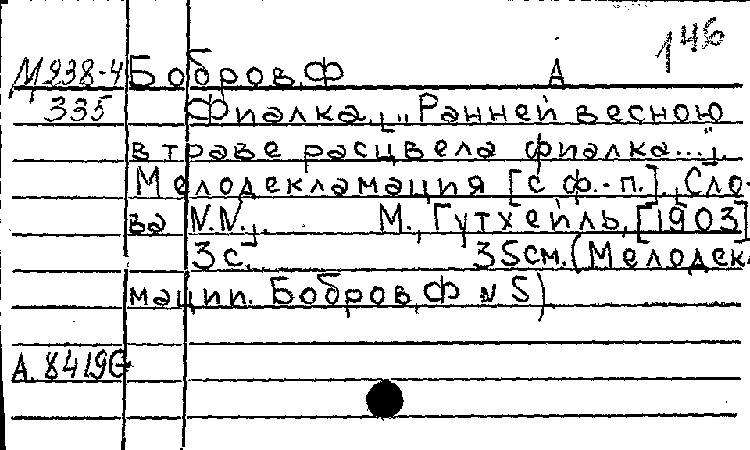 146
М938-4 Бобров, Ф А
335 Фиалка. [„Ранней весною
в траве расцвела фиалка..."].
Мелодекламация [с ф.-п.]. [Сло-
ва N.N.]. М., Гутхейль, [1903]
3 с. 35см. (Мелодек
мации. Бобров, Ф N 5)
А. 8419